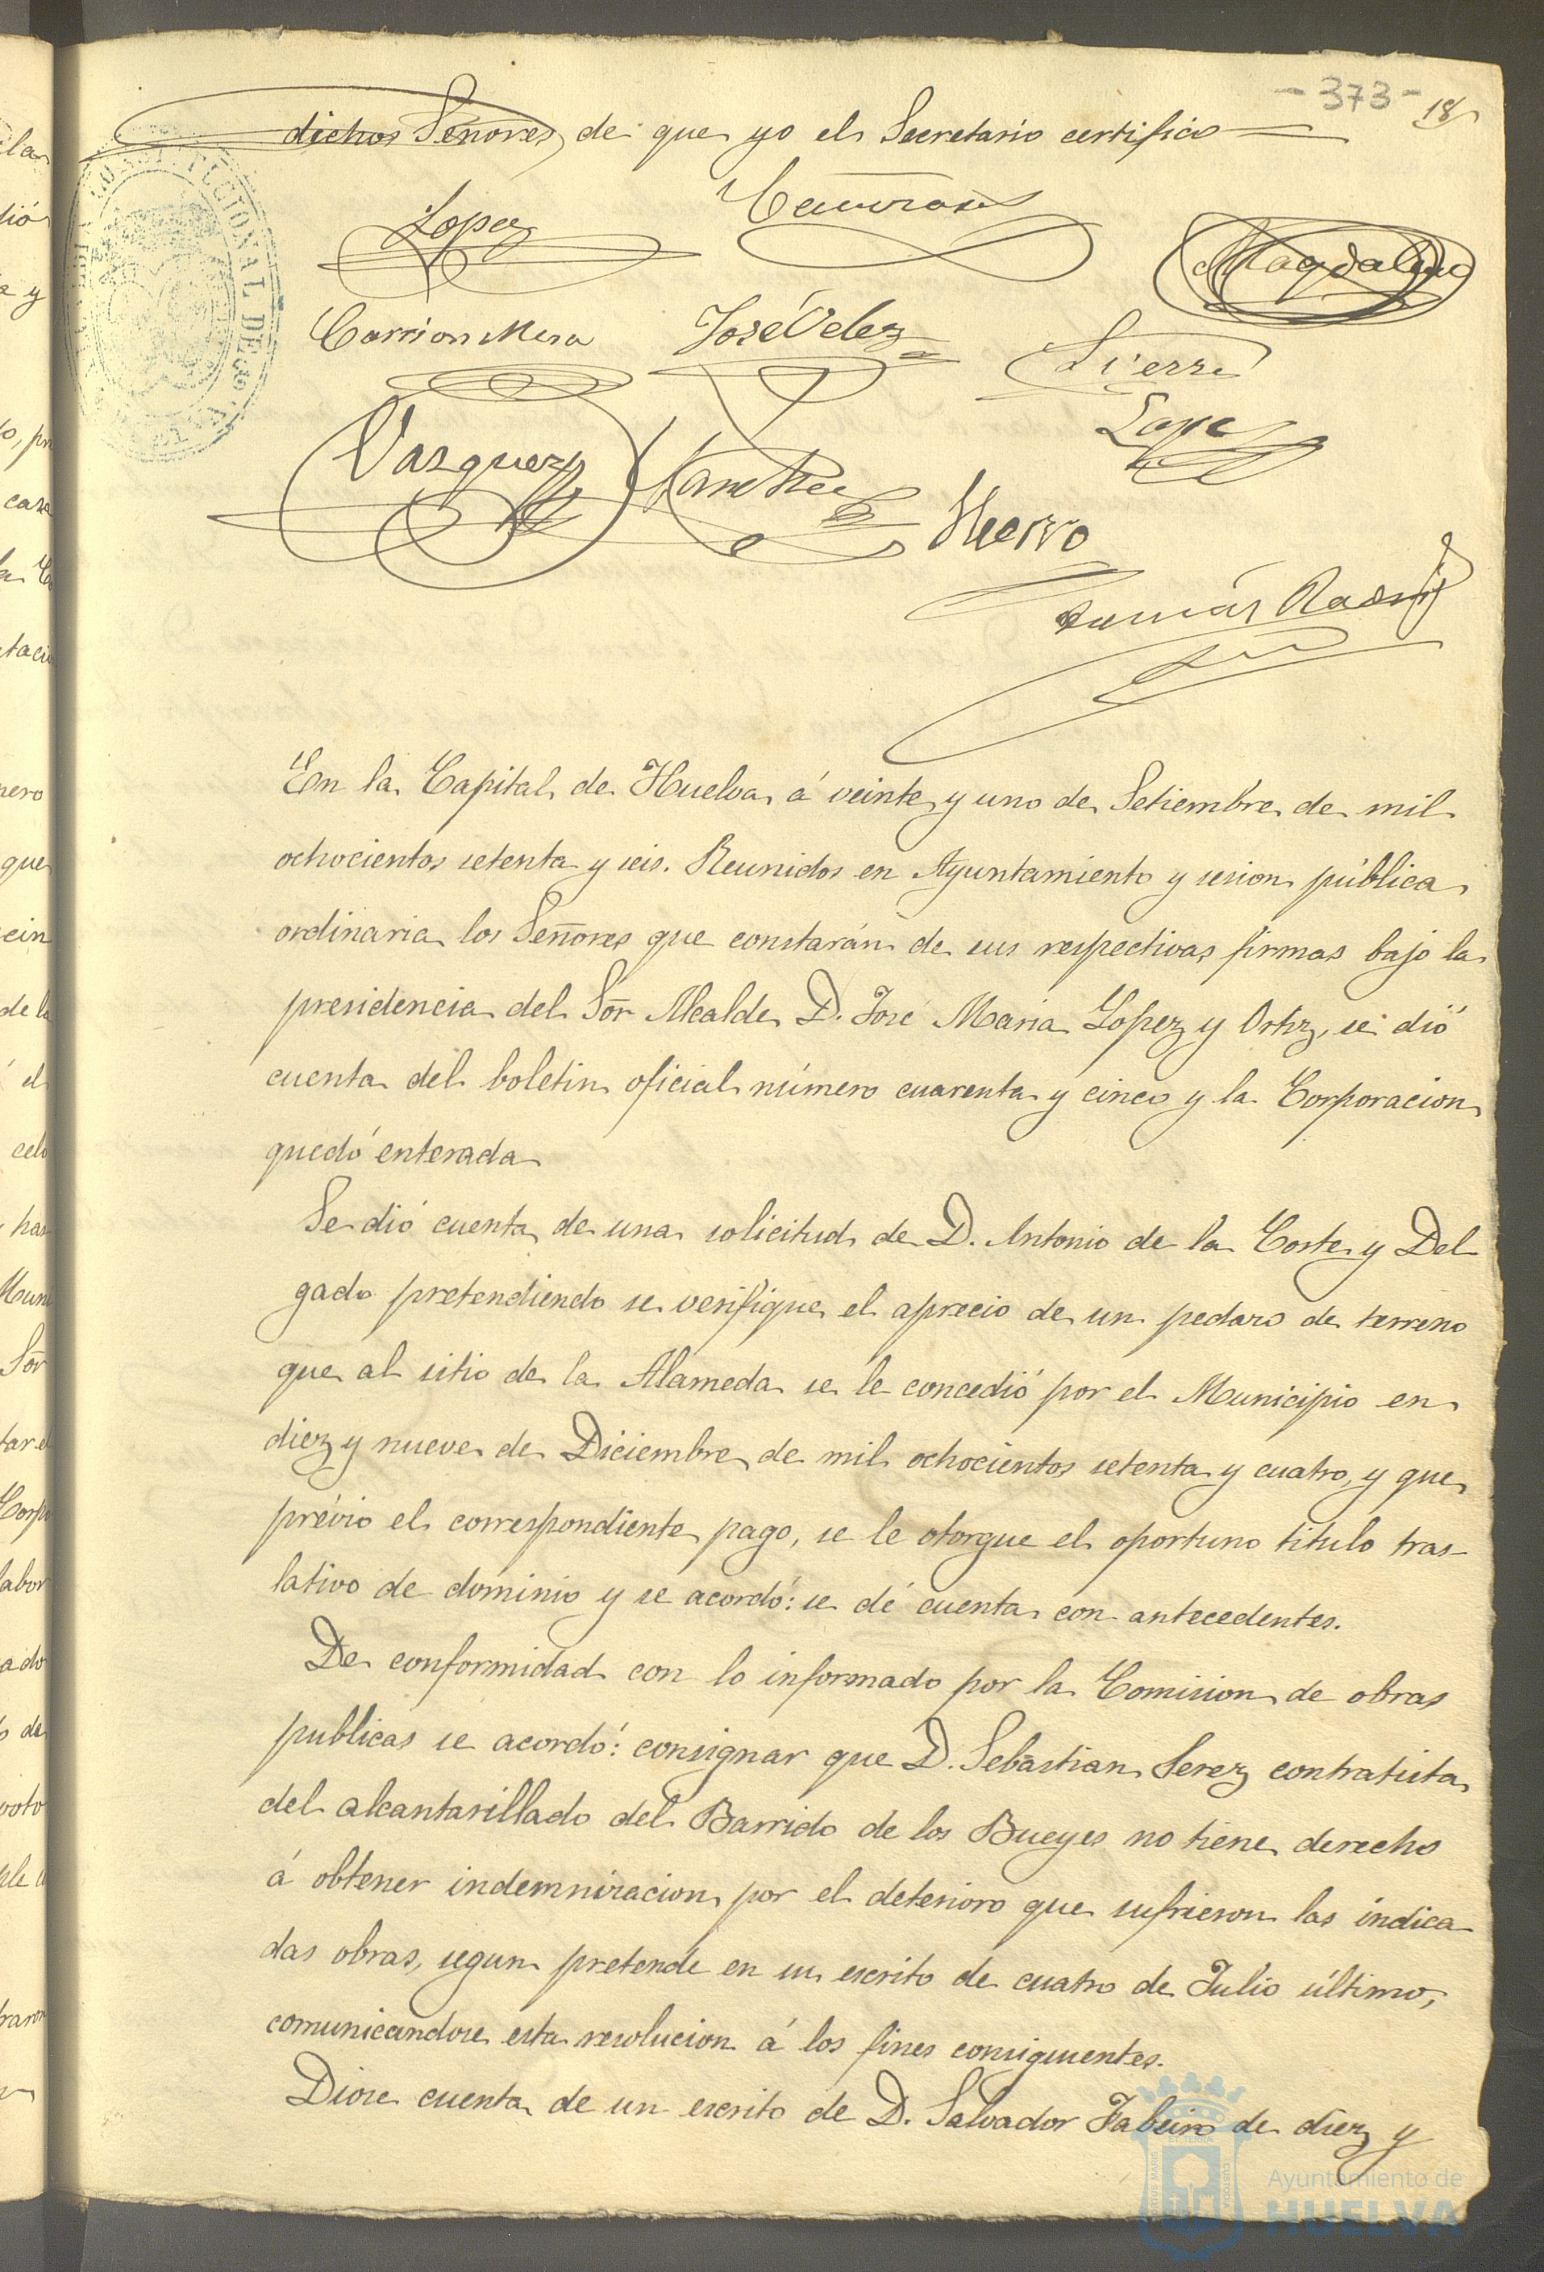 - 373 -
18
dichos Señores, de que yo el Secretario certifico
Lopez
Magdaleno
Carrion Mesa
José Velez
Sierra
Lopez
Vazquez
Sanchez
Hierro
Tomás
En la Capital de Huelva á veinte y uno de Setiembre de mil
ochocientos setenta y seis. Reunidos en Ayuntamiento y sesion pública
ordinaria los Señores que constarán de sus respectivas firmas bajo la
presidencia del Sor Alcalde D. José Maria Lopez y Ortiz, se dió
cuenta del boletin oficial número cuarenta y cinco y la Corporacion
quedó enterada
Se dió cuenta de una solicitud de D. Antonio de la Corte y Del
gado pretendiendo se verifique el aprecio de un pedazo de terreno
que al sitio de la Alameda se le concedió por el Municipio en
diez y nueve de Diciembre de mil ochocientos setenta y cuatro, y que
prévio el correspondiente pago, se le otorgue el oportuno titulo tras-
lativo de dominio y se acordó: se dé cuenta con antecedentes.
De conformidad con lo informado por la Comision de obras
publicas se acordó: consignar que D. Sebastian Serez contratista
del alcantarillado del Barrido de los Bueyes no tiene derecho
á obtener indemnizacion por el deterioro que sufrieron las indica
das obras, segun pretende en su escrito de cuatro de Julio último,
comunicandose esta resolucion á los fines consiguientes.
Diose cuenta de un escrito de D. Salvador Fabeiro de diez y
Ayuntamiento de
HUELVA